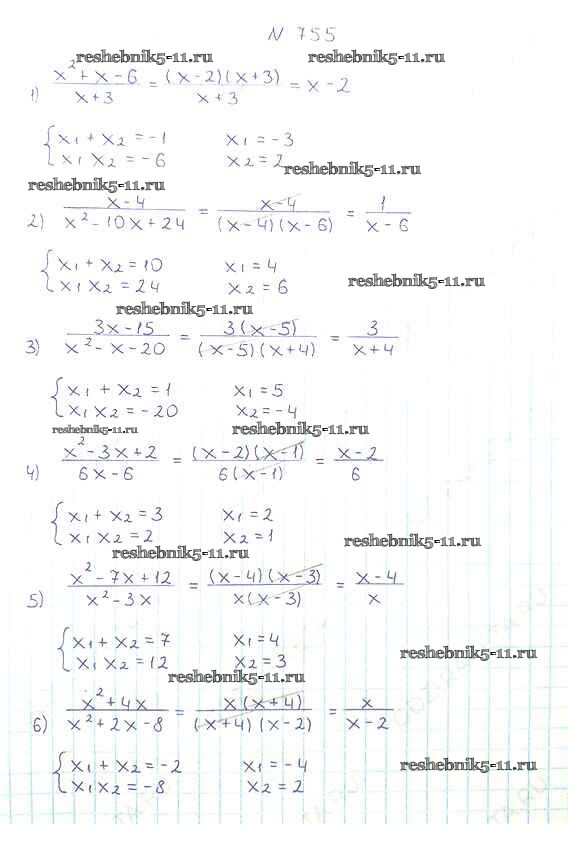 N 755
reshebnik5-11.ru reshebnik5-11.ru
1) (x² + x - 6)/(x + 3) = ((x - 2)(x + 3))/(x + 3) = x - 2
{ x₁ + x₂ = -1    x₁ = -3
{ x₁ x₂ = -6    x₂ = 2
reshebnik5-11.ru
reshebnik5-11.ru
2) (x - 4)/(x² - 10x + 24) = (x - 4)/((x - 4)(x - 6)) = 1/(x - 6)
{ x₁ + x₂ = 10    x₁ = 4
{ x₁ x₂ = 24    x₂ = 6
reshebnik5-11.ru
reshebnik5-11.ru
3) (3x - 15)/(x² - x - 20) = (3(x - 5))/((x - 5)(x + 4)) = 3/(x + 4)
{ x₁ + x₂ = 1    x₁ = 5
{ x₁ x₂ = -20    x₂ = -4
reshebnik5-11.ru reshebnik5-11.ru
4) (x² - 3x + 2)/(6x - 6) = ((x - 2)(x - 1))/(6(x - 1)) = (x - 2)/6
{ x₁ + x₂ = 3    x₁ = 2
{ x₁ x₂ = 2    x₂ = 1
reshebnik5-11.ru
reshebnik5-11.ru
5) (x² - 7x + 12)/(x² - 3x) = ((x - 4)(x - 3))/(x(x - 3)) = (x - 4)/x
{ x₁ + x₂ = 7    x₁ = 4
{ x₁ x₂ = 12    x₂ = 3
reshebnik5-11.ru
reshebnik5-11.ru
6) (x² + 4x)/(x² + 2x - 8) = (x(x + 4))/((x + 4)(x - 2)) = x/(x - 2)
{ x₁ + x₂ = -2    x₁ = -4
{ x₁ x₂ = -8    x₂ = 2
reshebnik5-11.ru